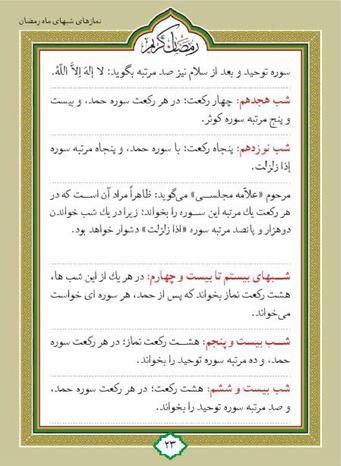 نمازهای شبهای ماه رمضان
رمضان کریم
سوره توحید و بعد از سلام نیز صد مرتبه بگوید: لا إلهَ إلاَّ اللّهُ.
شب هجدهم: چهار رکعت؛ در هر رکعت سوره حمد، و بیست
و پنج مرتبه سوره کوثر.
شب نوزدهم: پنجاه رکعت؛ با سوره حمد، و پنجاه مرتبه سوره
إذا زلزلت.
مرحوم «علاّمه مجلسی» می‌گوید: ظاهراً مراد آن است که در
هر رکعت یك مرتبه این سوره را بخواند؛ زیرا در یک شب خواندن
دوهزار و پانصد مرتبه سوره «اذا زلزلت» دشوار خواهد بود.
شبهای بیستم تا بیست و چهارم: در هر یك از این شب ها،
هشت رکعت نماز بخواند که پس از حمد، هر سوره ای خواست
می‌خواند.
شب بیست و پنجم: هشت رکعت نماز؛ در هر رکعت سوره
حمد، و ده مرتبه سوره توحید را بخواند.
شب بیست و ششم: هشت رکعت؛ در هر رکعت سوره حمد،
و صد مرتبه سوره توحید را بخواند.
۲۳